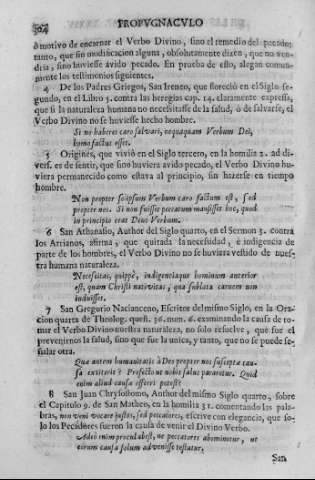 304 PROPVGNACVLO
ò motivo de encarnar el Verbo Divino, sino el remedio del pecado;
tanto, que sin modificacion alguna, absolutamente dizen, que no ven-
dria, sino huviesse ávido pecado. En prueba de esto, alegan comun-
mente los testimonios siguientes.
4 De los Padres Griegos, San Ireneo, que floreciò en el Siglo se-
gundo, en el Libro 5. contra las heregias cap. 14. claramente expressa,
que si la naturaleza humana no necesitasse de la salud, ò de salvarse, el
Verbo Divino no se huviesse hecho hombre.
Si ne haberet caro salvari, nequaquam Verbum Dei,
homo factus esset.
5 Origines, que viviò en el Siglo tercero, en la homilia 2. ad di-
vers. es de sentir, que sino huviera avido pecado, el Verbo Divino hu-
viera permanecido como estava al principio, sin hazerse en tiempo
hombre.
Non propter se ipsum Verbum caro factum est, sed
propter nos. Si non fuisset peccatum mansisset hoc, quod
in principio erat Deus Verbum.
6 San Athanasio, Author del Siglo quarto, en el Sermon 3. contra
los Arrianos, afirma, que quitada la necesidad, è indigencia de
parte de los hombres, el Verbo Divino no se huviera vestido de nues-
tra humana naturaleza.
Necesitas, quippè, indigentiaque hominum anterior
est, quam Christi nativitas; qua sublata carnem non
induisset.
7 San Gregorio Nacianceno, Escritor del mismo Siglo, en la Ora-
cion quarta de Theolog. quæst. 36. num. 6. examinando la causa de to-
mar el Verbo Divino nuestra naturaleza, no solo resuelve, que fuè el
prevenirnos la salud, sino que fuè la unica, y tanto, que no se puede se-
ñalar otra.
Quæ autem humanitatis à Deo propter nos susceptæ cau-
sa extiterit? Profecto ut nobis salus pararetur. Quid
enim aliud causa afferri potest?
8 San Juan Chrysostomo, Author del mismo Siglo quarto, sobre
el Capitulo 9. de San Matheo, en la homilia 31. comentando las pala-
bras, non veni vocare justos, sed peccatores, escrive con elegancia, que so-
lo los Pecadores fueron la causa de venir el Divino Verbo.
Adeò enim procul abest, ne peccatores abominetur, ut
eorum causa solum advenisse testatur.
San